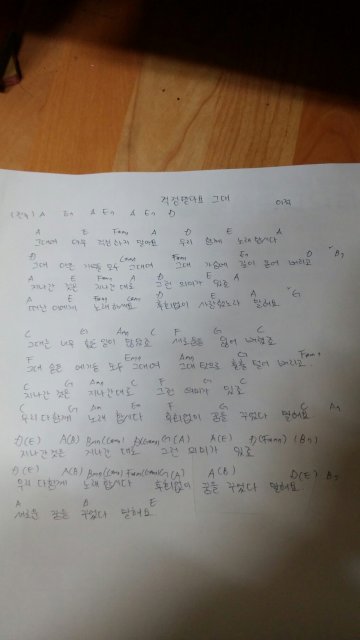 걱정말아요 그대 이적
(전주) A Em A Em A Em D
A E F#m A D E A
그대여 아무 걱정하지 말아요 우리 함께 노래합시다
D E
그대 아픈 기억들 모두 그대여 그대 가슴에 깊이 묻어 버리고
A E F#m A D E A
지나간 것은 지나간 대로 그런 의미가 있죠
A E D E A G
떠난 이에게 노래하세요 후회없이 사랑했노라 말해요
C G Am C F G C
그대는 너무 힘든 일이 많았죠 새로움을 잃어 버렸죠
F Em
그대 슬픈 얘기들 모두 그대여 그대 탓으로 훌훌 털어 버리고
C G Am C F G C
지나간 것은 지나간대로 그런 의미가 있죠
C G Am Em F G C
우리 다함께 노래 합시다 후회없이 꿈을 꾸었다 말해요
D(E) A(B) G(A) A(B)
지나간것은 지나간 대로 그런 의미가 있죠
D(E) A(B) G(A) A(B) D(E)
우리 다함께 노래합시다 후회없이 꿈을 꾸었다 말해요
A E
새로운 꿈을 꾸었다 말해요